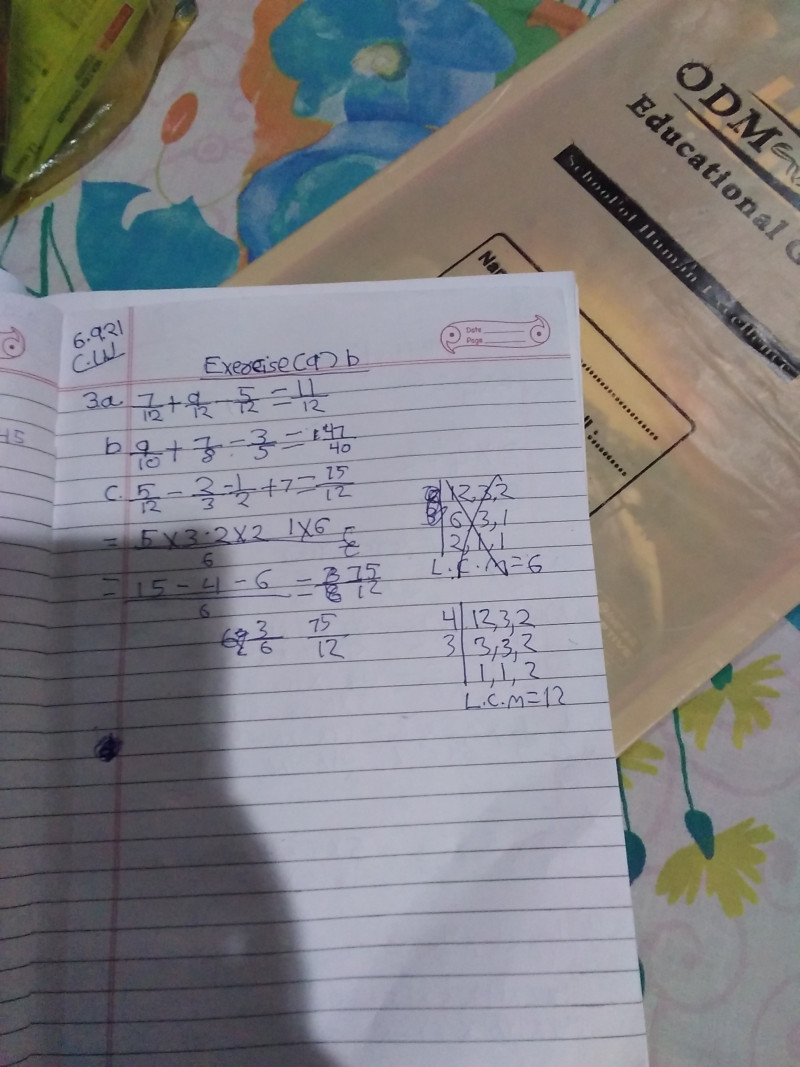 ODM
Educational G
School of Human Excellence
Nam
6.921
C.W
Date
Page
Exercise(9) b
3.a. 7/12 + 9/12 - 5/12 = 11/12
b 9/10 + 7/8 - 3/5 = 47/40
c. 5/12 - 2/3 - 1/2 + 7 = 75/12
= 5×3-2×2 1×6 / 6
= 15-4-6 / 6 = 75/12
3/6 75/12
12,3,2
6,3,1
2,1,1
L.C.M=6
4 12,3,2
3 3,3,2
1,1,2
L.C.M=12